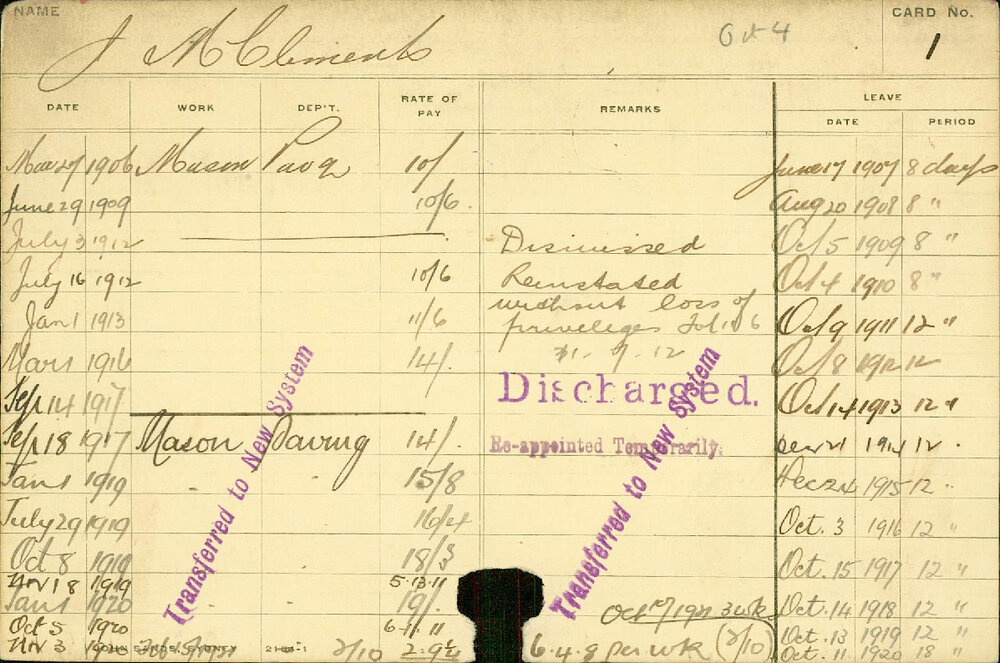 NAME J McClements Oct 4 CARD No. 1
DATE WORK DEP'T. RATE OF PAY REMARKS LEAVE DATE PERIOD
Mar 27 1906 Mason Paving 10/ June 17 1907 8 days
June 29 1909 10/6. Aug 20 1908 8 "
July 3 1912 Dismissed Oct 5 1909 8 "
July 16 1912 10/6 Reinstated Oct 4 1910 8 "
without loss of
Jan 1 1913 11/6 priveleges Oct 9 1911 12 "
Mar 1 1916 14/. Oct 8 1912 12
Sep 14 1917 Discharged. Oct 14 1913 12 "
Sep 18 1917 Mason Paving 14/. Re-appointed Temporarily. 1914 12
Jan 1 1919 15/8 Dec 24 1915 12
July 29 1919 16/4 Oct. 3 1916 12 "
Oct 8 1919 18/3 Oct. 15 1917 12 "
Nov 18 1919 5.13.11
Jan 1 1920 19/. 3 wk Oct. 14 1918 12 "
Oct 5 1920 6.11.11 Oct. 13 1919 12 "
Nov 3 2/10 6.4.9 per wk (2/10) Oct. 11 1920 18 "
Transferred to New System
Transferred to New System